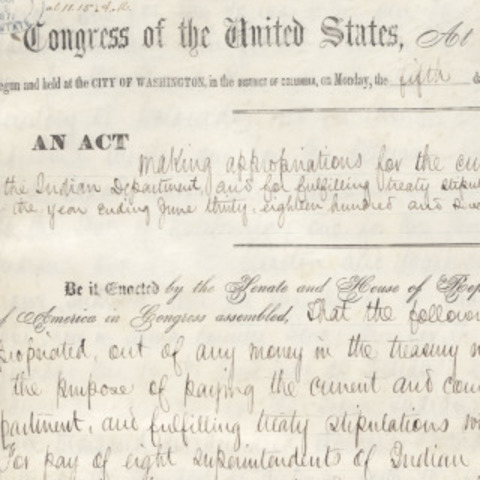 Congress of the United States, At
egun and held at the CITY OF WASHINGTON, in the DISTRICT OF COLUMBIA, on Monday, the fifth d
AN ACT making appropriations for the cu
the Indian Department, and for fulfilling treaty stipul
the year ending June thirty, eighteen hundred and
Be it Enacted by the Senate and House of Rep
f America in Congress assembled, That the followin
propriated, out of any money in the treasury n
the purpose of paying the current and con
partment, and fulfilling treaty stipulations
For pay of eight superintendents of Indian